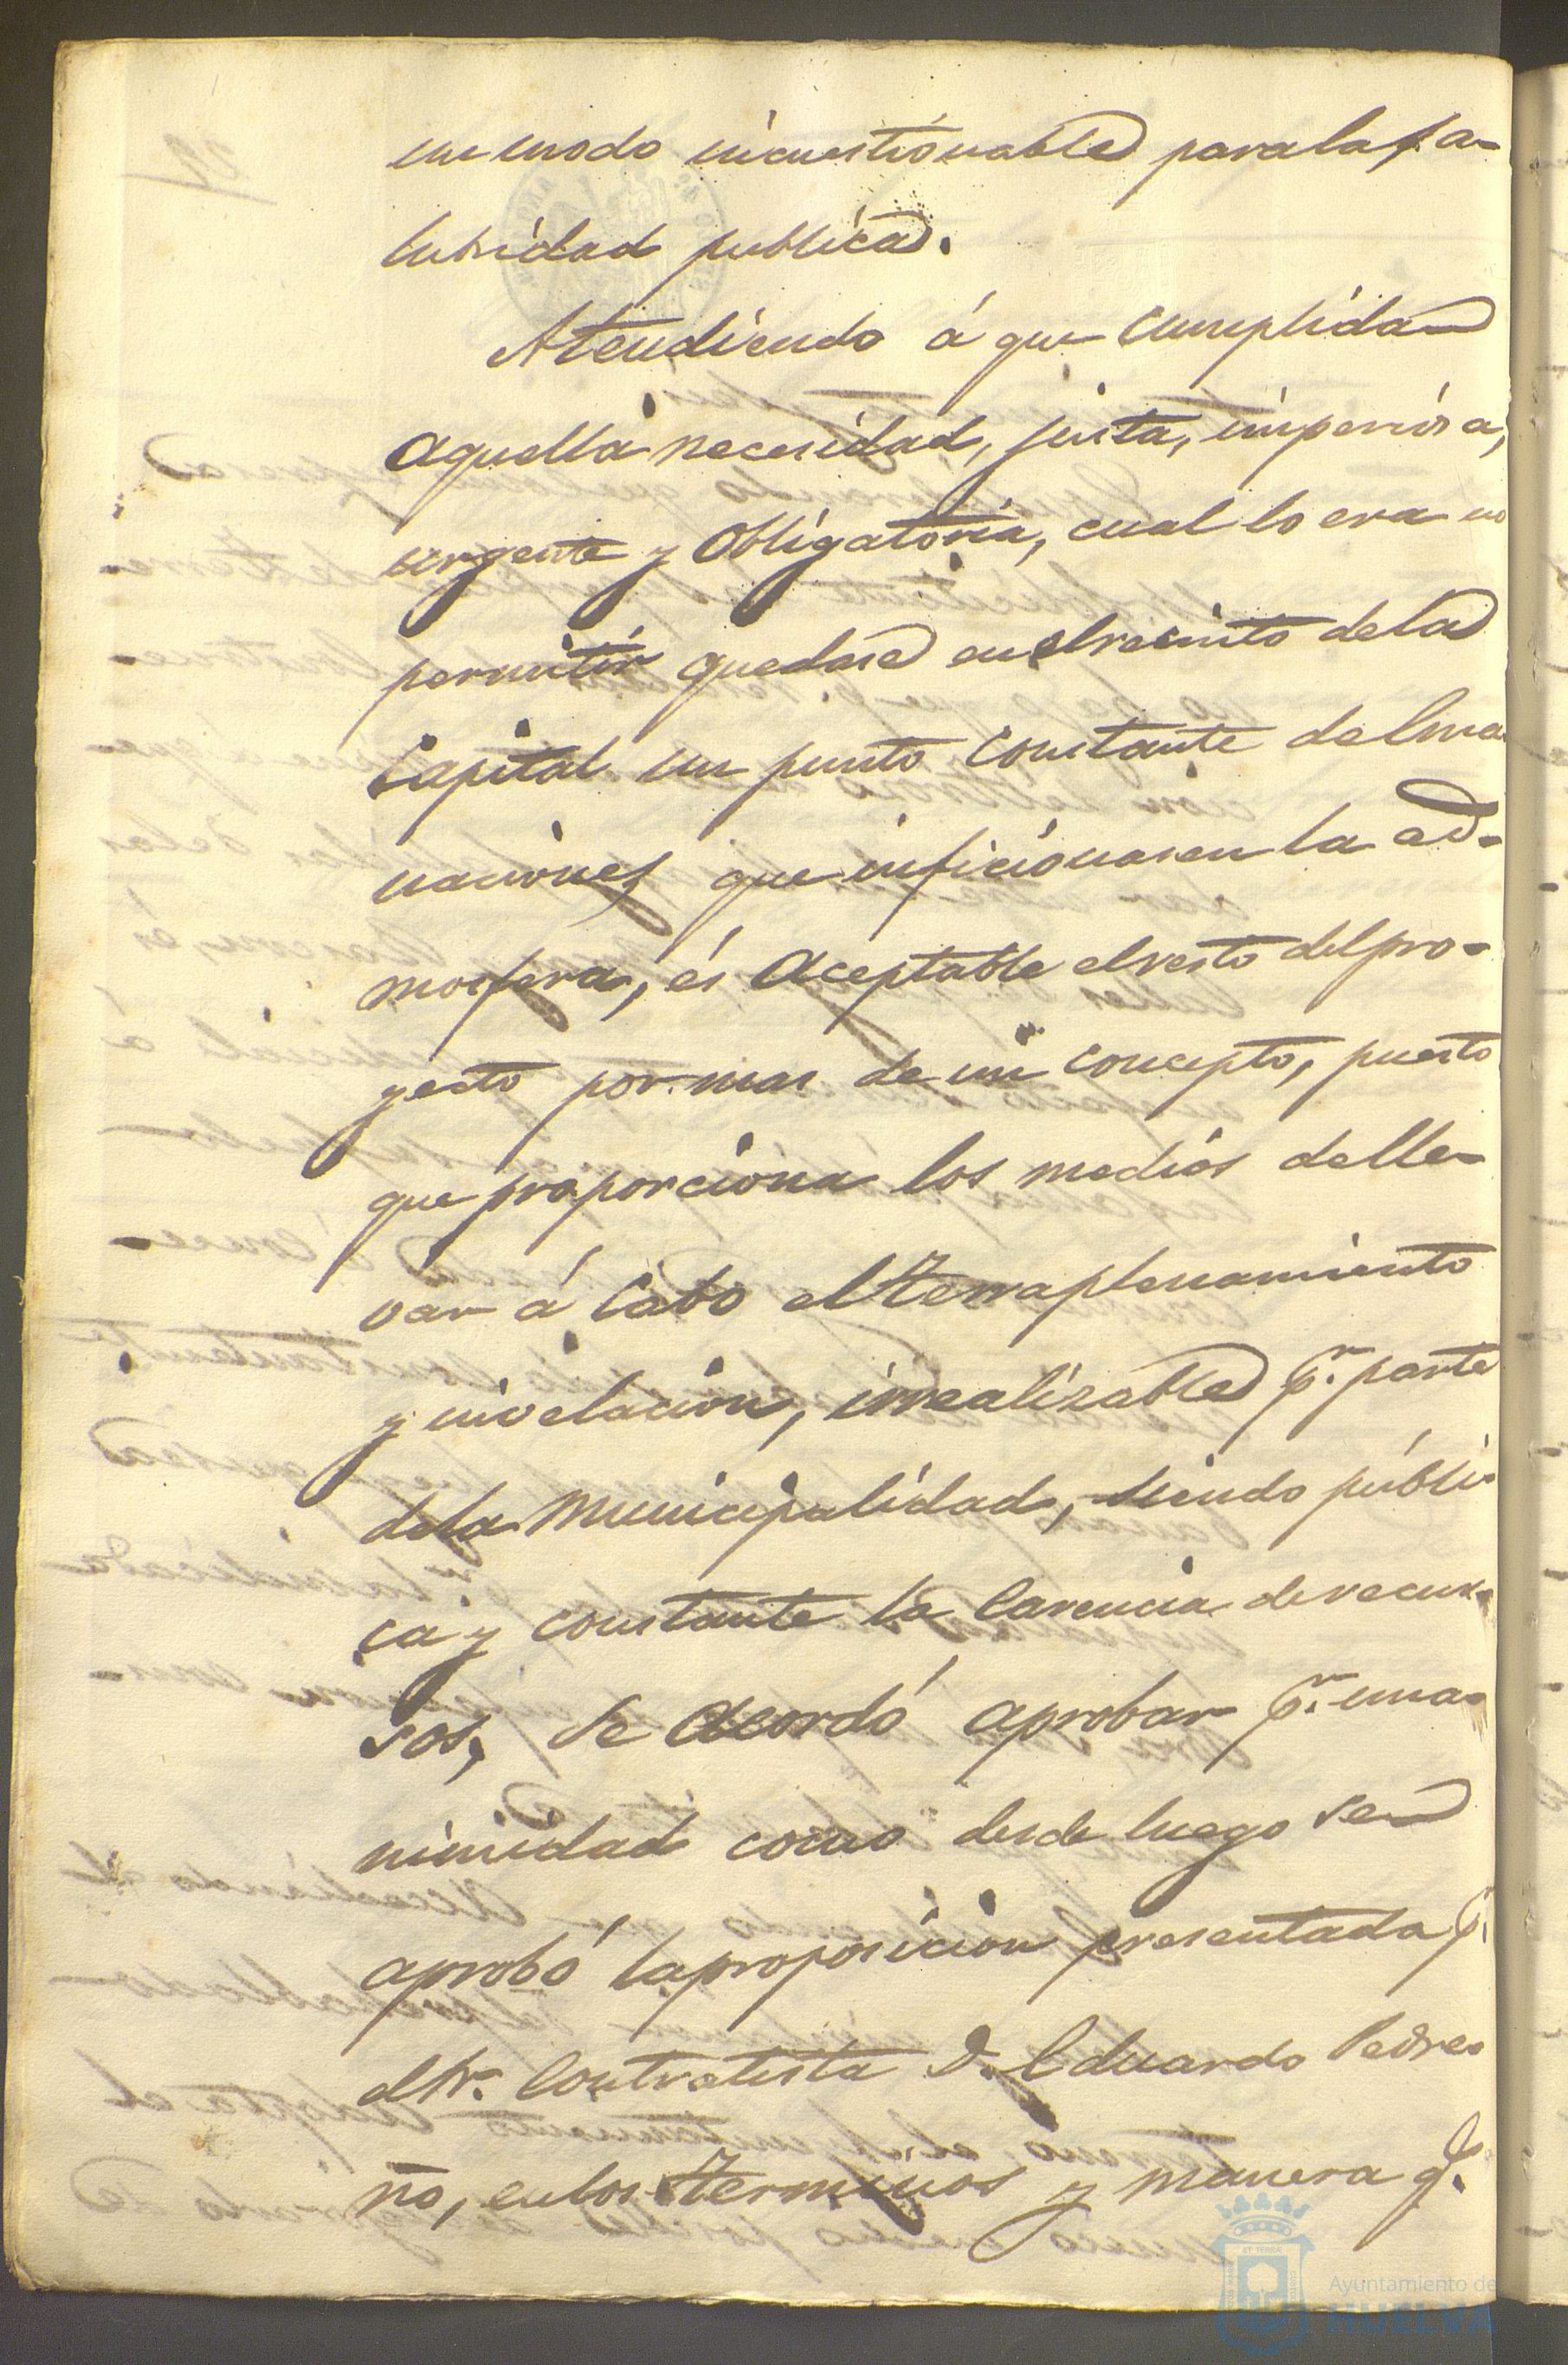 un modo incuestionable para la sa-
lubridad publica.
Atendiendo á que cumplida
aquella necesidad, justa, imperiosa,
urgente y obligatoria, cual lo era no
permitir quedase en el recinto de la
Capital un punto constante de lma
naciones que inficionasen la ad-
mosfera, és aceptable el resto del pro-
yecto por mas de un concepto, puesto
que proporciona los medios de lle-
var á cabo el terraplenamiento
y nivelacion, irrealizable p.r parte
de la Municipalidad, siendo públi
ca y constante la carencia de recur-
sos, se acordó aprobar p.r una-
nimidad como desde luego se
aprobó la proposicion presentada p.r
el Sr. Contratista D. Eduardo Pedre
ño, en los terminos y manera q.
Ayuntamiento de
HUELVA